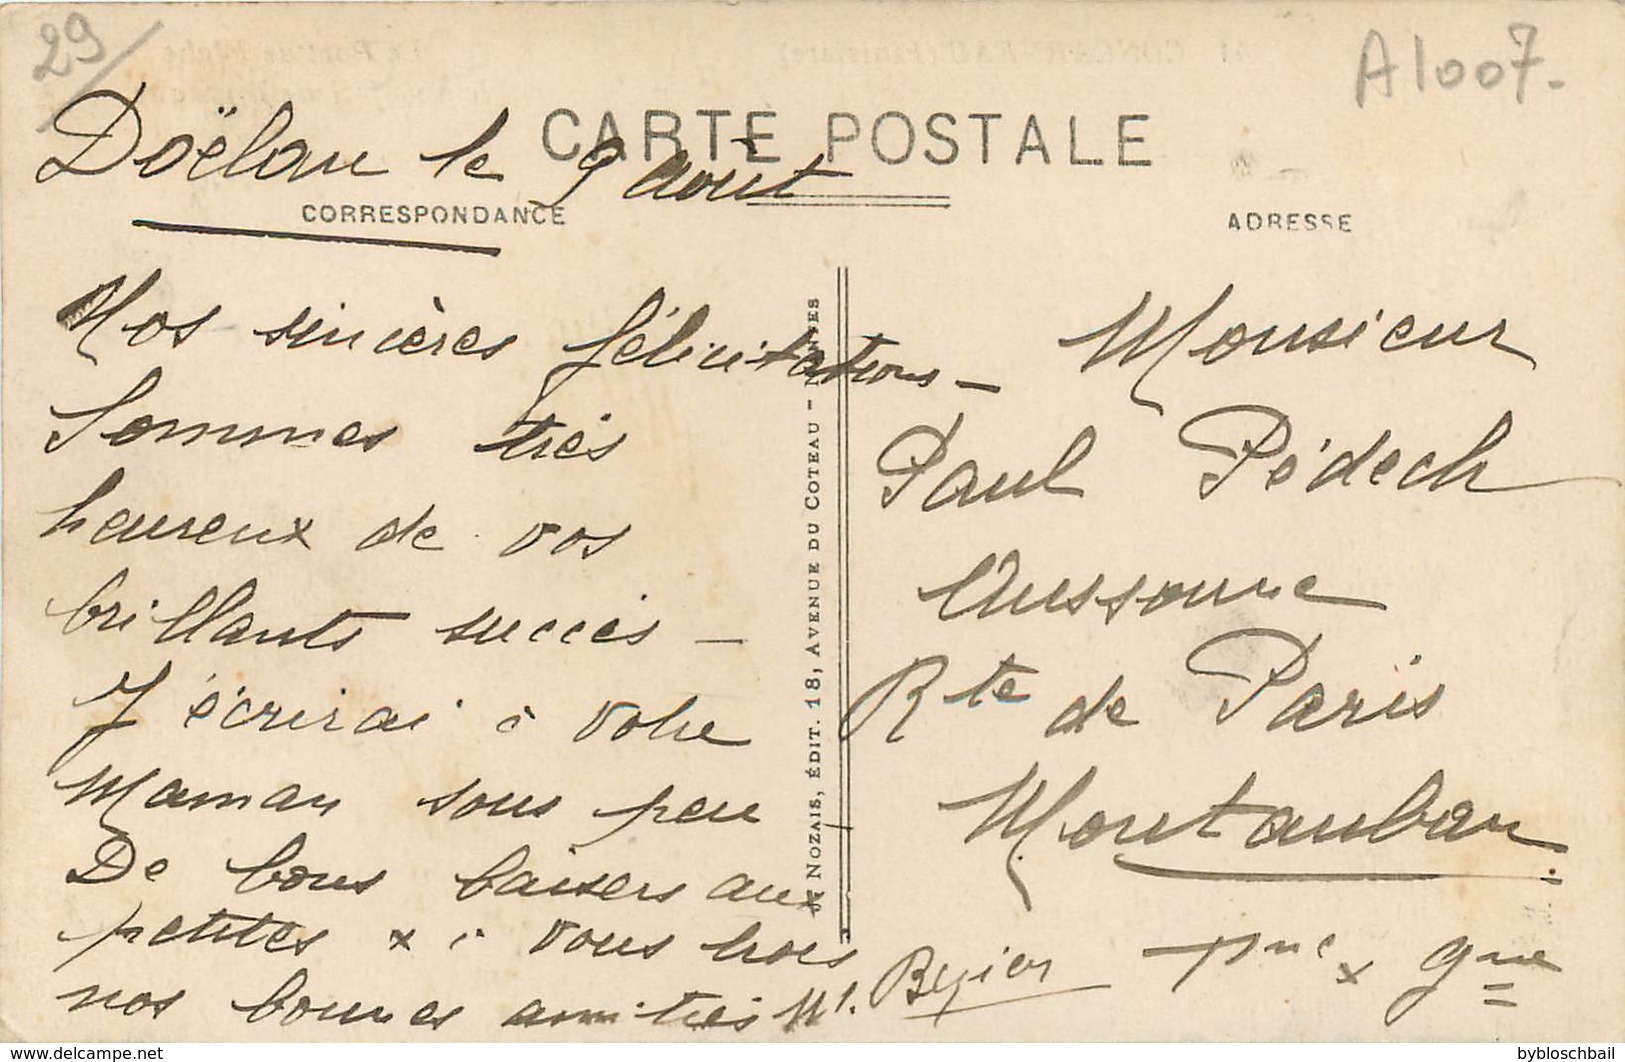 29
A1007.
CARTE POSTALE
Doëlan le 9 août
CORRESPONDANCE
ADRESSE
Nos sincères félicitations —
Sommes très
heureux de vos
brillants succès —
J'écrirai à votre
Maman sous peu
De bons baisers aux
petites x à vous trois
nos bonnes amitiés M.
J. NOZAIS, ÉDIT. 18, AVENUE DU COTEAU - NANTES
Monsieur
Paul Pédech
Aussonne
Rte de Paris
Montauban
Tarn x Gne
bybloschbail